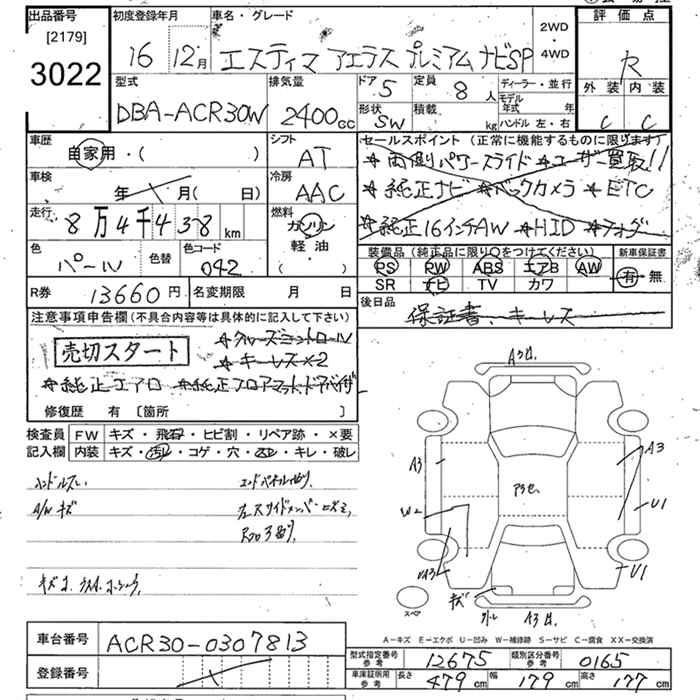 出品番号 初度登録年月 車名・グレード 評価点
[2179] 16 12月 エスティマ アエラス プレミアム ナビSP 2WD・4WD R
3022 型式 排気量 ドア 5 定員 8人 ディーラー・並行 外装 内装
DBA-ACR30W 2400cc 形状 SW 積載 kg モデル年式 年 ハンドル 左・右 C C
車歴 自家用・( ) シフト AT セールスポイント (正常に機能するものに限ります)
★両側パワースライド ★ユーザー買取!!
車検 年 月( 日) 冷房 AAC ★純正ナビ ★バックカメラ ★ETC
走行 8万4千438km 燃料 ガソリン 軽油・( ) ★純正16インチAW ★HID ★フォグ
色 パール 色替 色コード 042 装備品 (純正品に限り○をつけてください) 新車保証書
PS PW ABS エアB AW 有・無
SR ナビ TV カワ
R券 13660円 名変期限 月 日 後日品
保証書、キーレス
注意事項申告欄(不具合内容等は具体的に記入して下さい)
★クルーズコントロール
売切スタート ★キーレス×2
★純正エアロ ★純正フロアマット、ドアバイザ
修復歴 有 〔箇所 〕
検査員 FW キズ・飛石・ヒビ割・リペア跡・×要
記入欄 内装 キズ・汚れ・コゲ・穴・・キレ・破レ
ハンドルスレ
A/W キズ
A3
A3 A3
W2 U1
A3 U1
キズ
スペア
A3
A-キズ E-エクボ U-凹み W-補修跡 S-サビ C-腐食 XX-交換済
車台番号 ACR30-0307813
型式指定番号 参考 12675 類別区分番号 参考 0165
登録番号
車床証明用 参考 長さ 479cm 幅 179cm 高さ 177cm